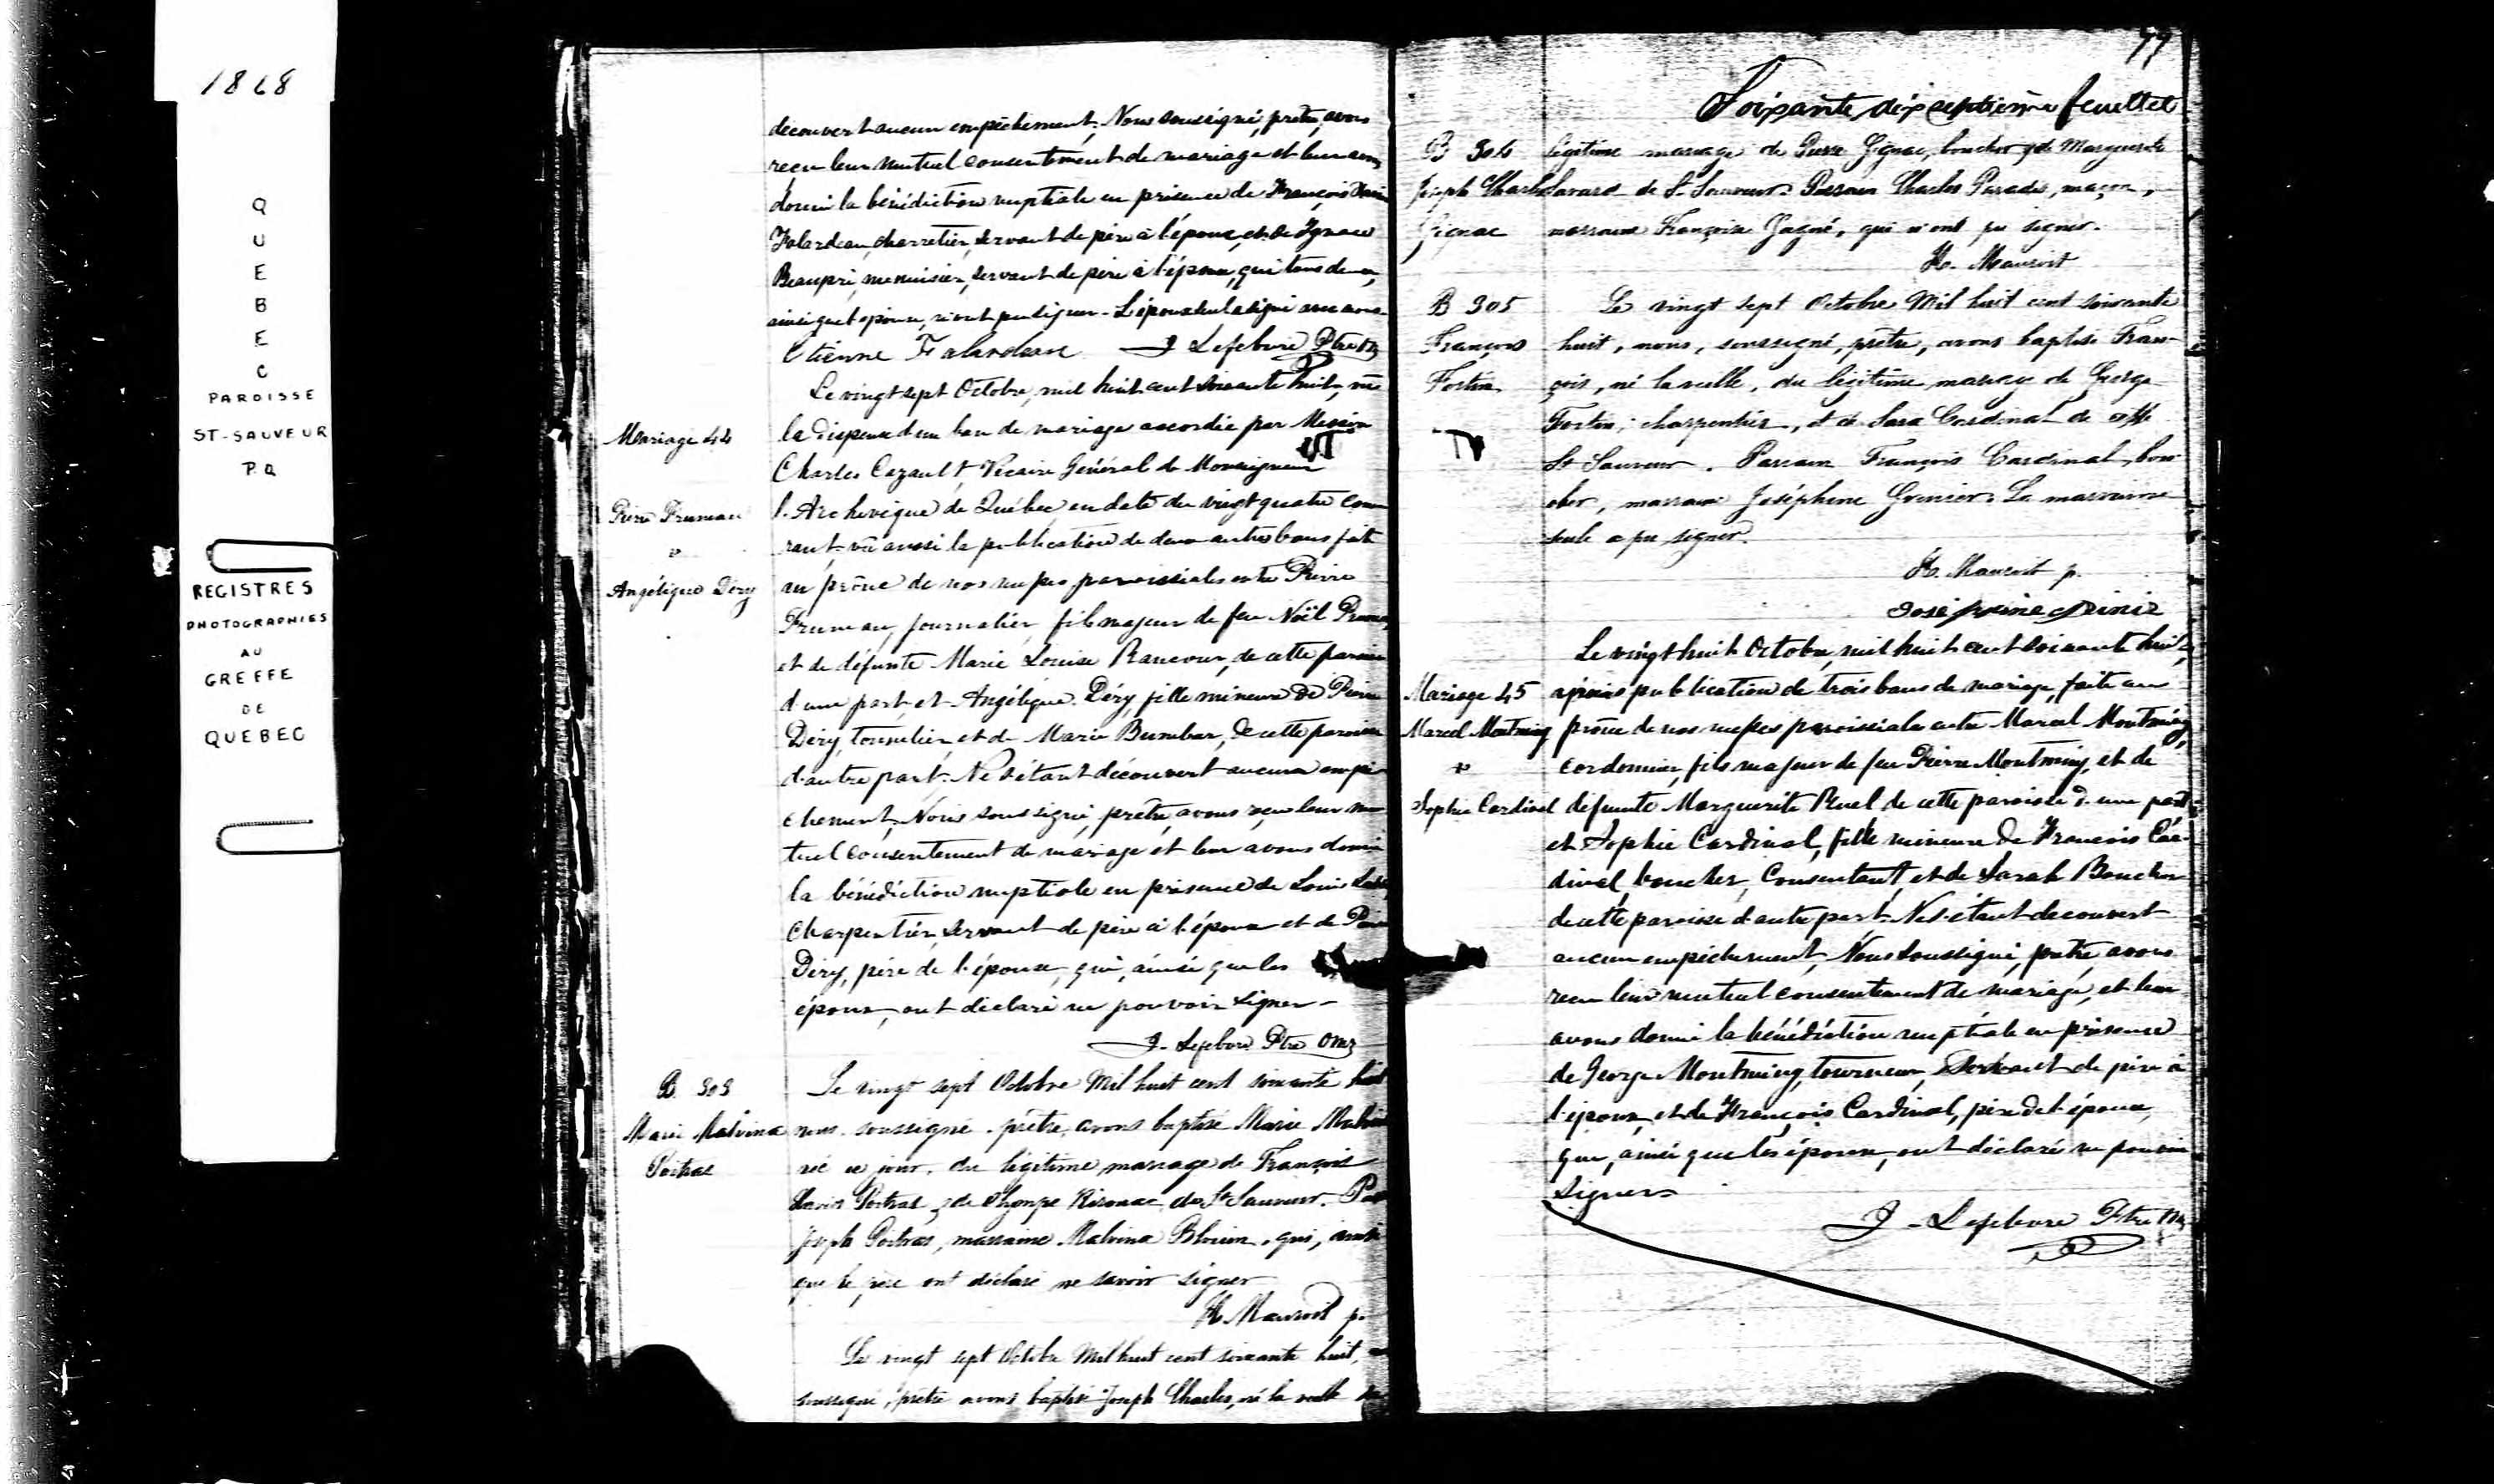 1868
QUEBEC
PAROISSE
ST-SAUVEUR
P.Q
REGISTRES
PHOTOGRAPHIES
AU
GREFFE
DE
QUEBEC
découvert aucun empêchement; Nous soussigné, prêtre, avons
reçu leur mutuel consentement de mariage et leur avons
donné la bénédiction nuptiale en présence de François
Falardeau, charretier, servant de père à l'époux, et de Ignace
Beaupré, menuisier, servant de père à l'épouse, qui tous deux,
ainsi que l'épouse, n'ont pu signer. L'époux seul a signé avec nous.
Etienne Falardeau J Lefebvre Ptre
Mariage 44
Pierre Pruneau
&
Angélique Déry
Le vingt sept Octobre, mil huit cent soixante huit, vu
la dispense d'un ban de mariage accordée par Messire
Charles Cazault, Vicaire Général de Monseigneur
l'Archevêque de Québec, en date du vingt quatre cou-
rant, vu aussi la publication de deux autres bans faite
au prône de nos messes paroissiales entre Pierre
Pruneau, journalier, fils majeur de feu Noël Pruneau,
et de défunte Marie Louise Rancour, de cette paroisse
d'une part, et Angélique Déry, fille mineure de Pierre
Déry, tonnelier, et de Marie Bumbar, de cette paroisse
d'autre part. Ne s'étant découvert aucun empê-
chement, Nous soussigné, prêtre, avons reçu leur mu-
tuel consentement de mariage et leur avons donné
la bénédiction nuptiale en présence de Louis
Charpentier, servant de père à l'époux et de Pierre
Déry, père de l'épouse, qui, ainsi que les
époux, ont déclaré ne pouvoir signer-
J. Lefebvre Ptre OMI
B 303
Marie Malvina
Poitras
Le vingt sept Octobre Mil huit cent soixante huit
nous soussigné prêtre, avons baptisé Marie Malvina
née ce jour, du légitime mariage de François
Xavier Poitras, & de de St Sauveur. Par
Joseph Poitras, marraine Malvina Blouin, qui, ainsi
que le père ont déclaré ne savoir signer
H. Mauroit p.
Le vingt sept Octobre Mil huit cent soixante huit,
soussigné, prêtre avons baptisé Joseph Charles, né la veille du
77
Soixante, dix septième feuillet
B 304
Joseph Charles
Gignac
légitime mariage de Pierre Gignac, boucher & de Marguerite
Savard de St. Sauveur. Parrain Charles Paradis, maçon,
marraine Françoise Gagné, qui n'ont pu signer.
H. Mauroit
B 305
François
Fortin
Le vingt sept Octobre Mil huit cent soixante
huit, nous, soussigné, prêtre, avons baptisé Fran-
çois, né la veille, du légitime mariage de George
Fortin, charpentier, et de Sara Cardinal de
St Sauveur. Parrain François Cardinal, bou-
cher, marraine Joséphine Grenier. La marraine
seule a pu signer.
H. Mauroit p.
Mariage 45
Marcel Montminy
&
Sophie Cardinal
Le vingt huit Octobre, mil huit cent soixante huit,
après publication de trois bans de mariage, faite au
prône de nos messes paroissiales entre Marcel Montminy,
cordonnier, fils majeur de feu Pierre Montminy, et de
défunte Marguerite Ruel de cette paroisse d'une part,
et Sophie Cardinal, fille mineure de François Car-
dinal, boucher, Consentant, et de Sarah Boucher
de cette paroisse d'autre part. Ne s'étant découvert
aucun empêchement, Nous soussigné, prêtre, avons
reçu leur mutuel consentement de mariage, et leur
avons donné la bénédiction nuptiale en présence
de George Montminy, tourneur, Servant de père à
l'époux, et de François Cardinal, père de l'épouse,
qui, ainsi que les époux, ont déclaré ne pouvoir
signer
J - Lefebvre Ptre